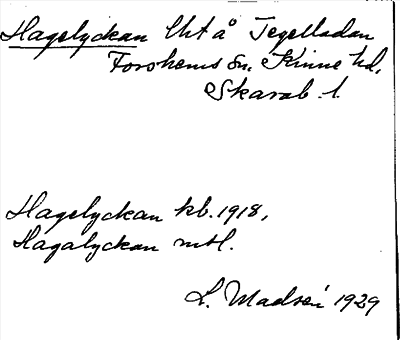 Hagelyckan Lht å Tegelladan
Forshems sn. Kinne hd.
Skarab. l.
Hagelyckan kb. 1918,
Hagalyckan mtl.
L. Madsén 1929